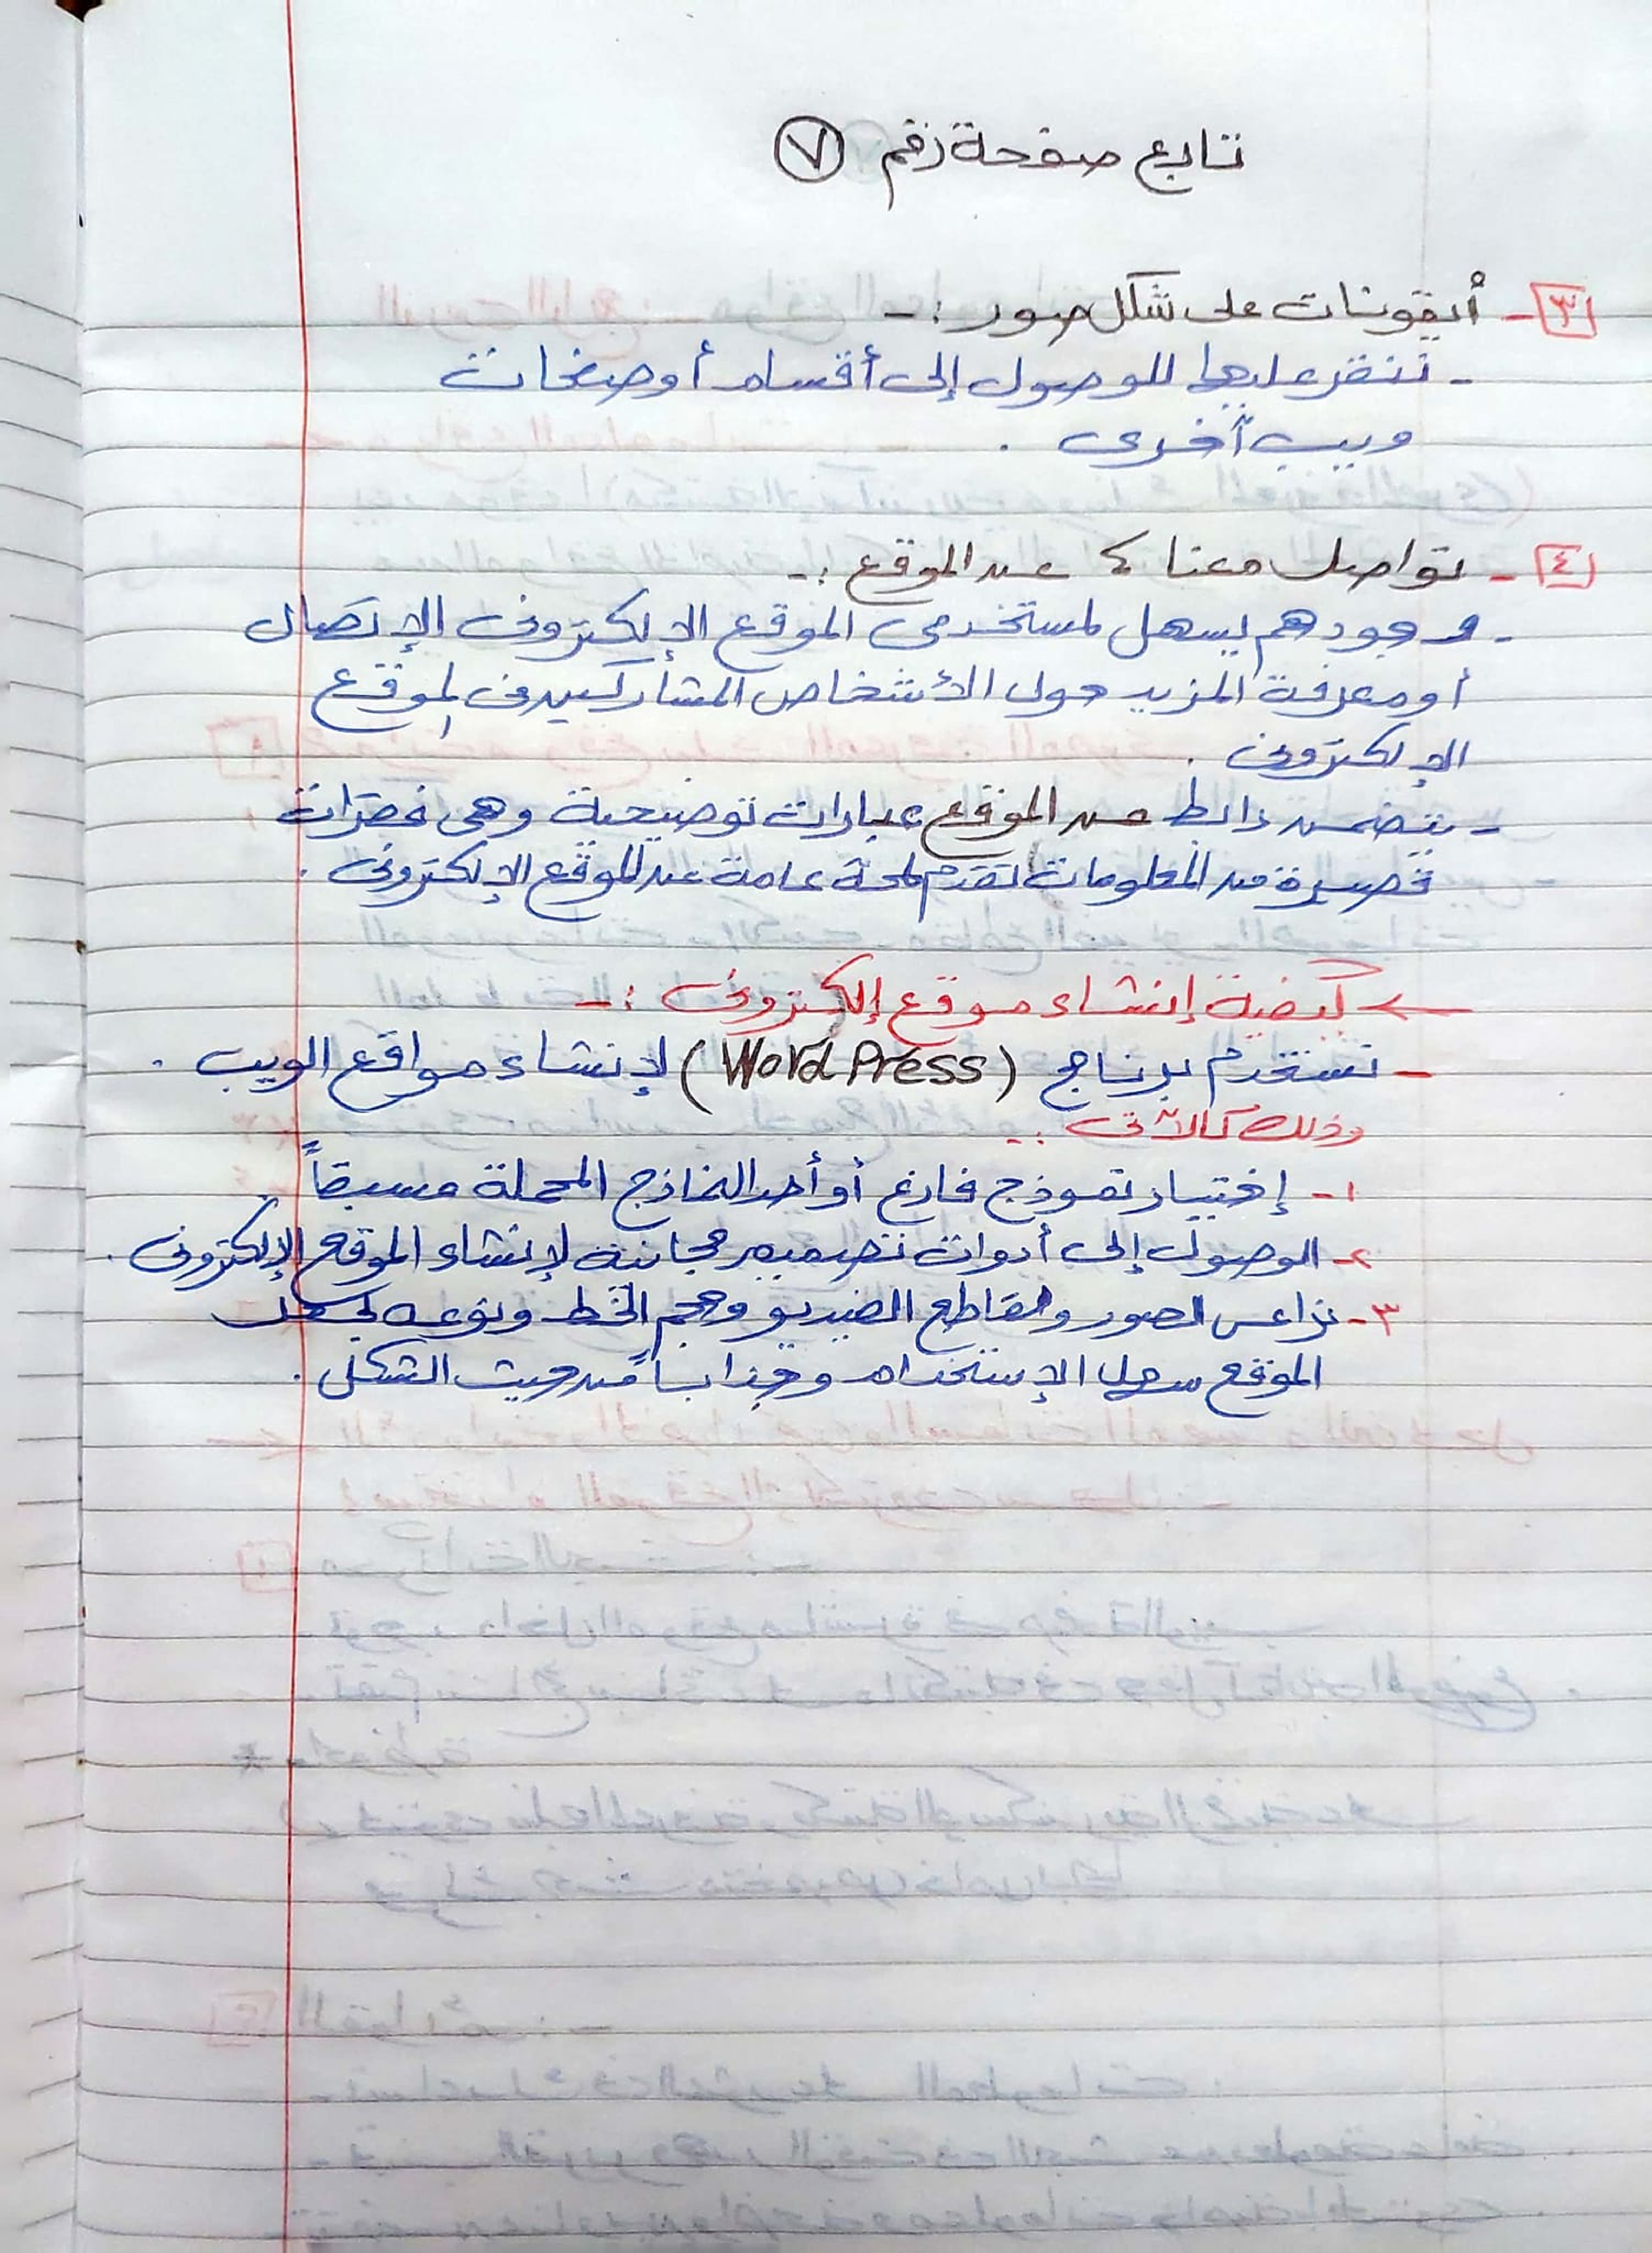 تابع صفحة رقم ٧
٣- أيقونات على شكل صور :-
- ننقر عليها للوصول إلى أقسام أو صفحات
ويب آخرى .
٤- تواصل معنا ، عن الموقع :-
- وجودهم يسهل لمستخدمى الموقع الإلكترونى الإتصال
أو معرفة المزيد حول الأشخاص المشاركين فى الموقع
الإلكترونى .
- يتضمن رابط عن الموقع عبارات توضيحية وهى فقرات
قصيرة من المعلومات تقدم لمحة عامة عن الموقع الإلكترونى .
← كيفية إنشاء موقع إلكترونى :-
- نستخدم برنامج (WordPress) لإنشاء مواقع الويب .
وذلك كالآتى :-
١- إختيار نموذج فارغ أو أحد النماذج المحملة مسبقاً
٢- الوصول إلى أدوات تصميم مجانية لإنشاء الموقع الإلكترونى .
٣- نراعى الصور ومقاطع الفيديو وحجم الخط ونوعه لجعل
الموقع سهل الإستخدام وجذاباً من حيث الشكل .